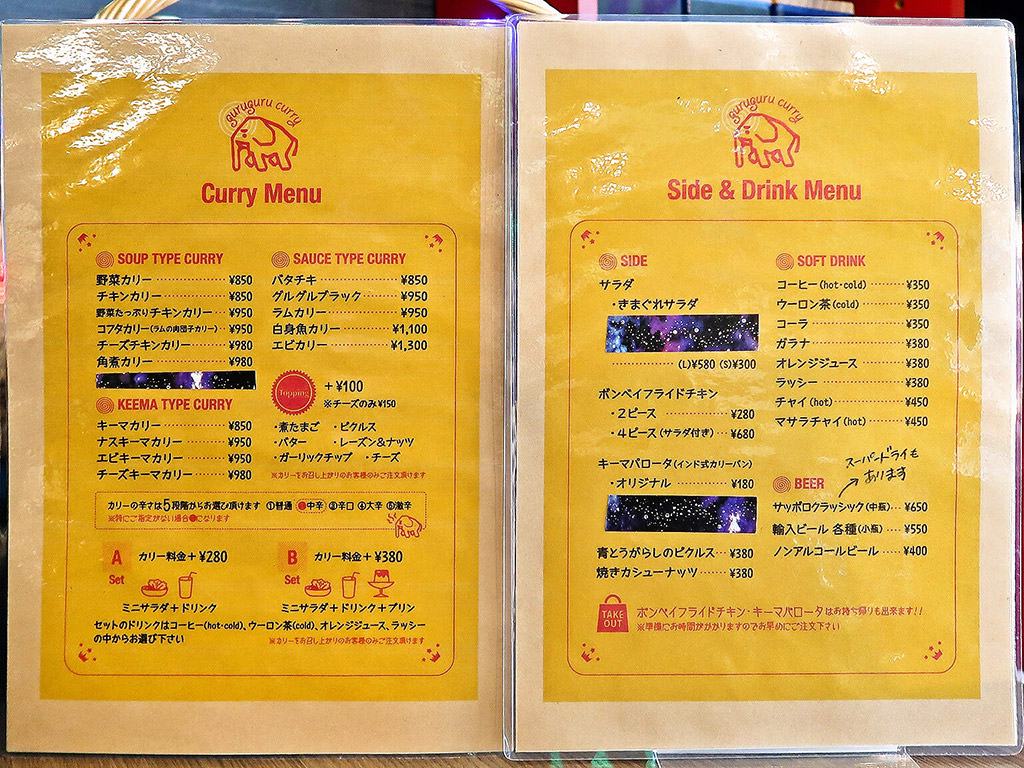 guruguru curry
Curry Menu
SOUP TYPE CURRY
野菜カリー ¥850
チキンカリー ¥850
野菜たっぷりチキンカリー ¥950
コフタカリー(ラムの肉団子カリー) ¥950
チーズチキンカリー ¥980
角煮カリー ¥980
KEEMA TYPE CURRY
キーマカリー ¥850
ナスキーマカリー ¥950
エビキーマカリー ¥950
チーズキーマカリー ¥980
SAUCE TYPE CURRY
バタチキ ¥850
グルグルブラック ¥950
ラムカリー ¥950
白身魚カリー ¥1,100
エビカリー ¥1,300
Topping
+¥100
※チーズのみ¥150
・煮たまご ・ピクルス
・バター ・レーズン&ナッツ
・ガーリックチップ ・チーズ
※カリーをお召し上がりのお客様のみご注文頂けます
カリーの辛さは5段階からお選び頂けます ①普通 ❷中辛 ③辛口 ④大辛 ⑤激辛
※特にご指定がない場合❷になります
A Set
カリー料金+¥280
ミニサラダ+ドリンク
B Set
カリー料金+¥380
ミニサラダ+ドリンク+プリン
セットのドリンクはコーヒー(hot・cold)、ウーロン茶(cold)、オレンジジュース、ラッシー
の中からお選び下さい
※カリーをお召し上がりのお客様のみご注文頂けます
guruguru curry
Side & Drink Menu
SIDE
サラダ
・きまぐれサラダ
(L)¥580 (S)¥300
ボンベイフライドチキン
・2ピース ¥280
・4ピース(サラダ付き) ¥680
キーマパロータ(インド式カリーパン)
・オリジナル ¥180
青とうがらしのピクルス ¥380
焼きカシューナッツ ¥380
SOFT DRINK
コーヒー(hot・cold) ¥350
ウーロン茶(cold) ¥350
コーラ ¥350
ガラナ ¥380
オレンジジュース ¥380
ラッシー ¥380
チャイ(hot) ¥450
マサラチャイ(hot) ¥450
スーパードライも
あります
BEER
サッポロクラッシック(中瓶) ¥650
輸入ビール 各種(小瓶) ¥550
ノンアルコールビール ¥400
TAKE OUT
ボンベイフライドチキン・キーマパロータはお持ち帰りも出来ます!!
※準備にお時間がかかりますのでお早めにご注文下さい